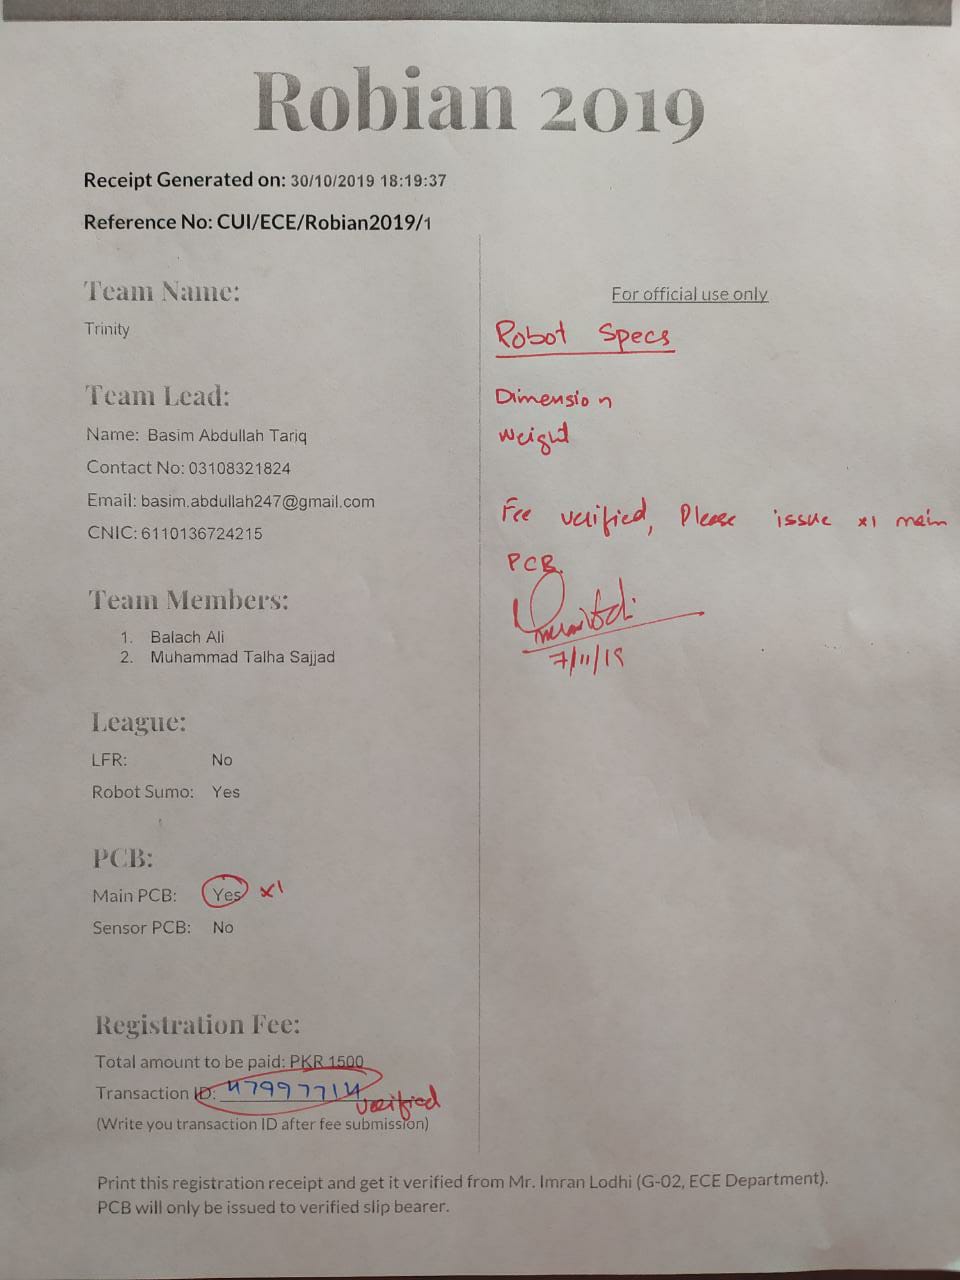 Robian 2019
Receipt Generated on: 30/10/2019 18:19:37
Reference No: CUI/ECE/Robian2019/1
Team Name:
Trinity
Team Lead:
Name: Basim Abdullah Tariq
Contact No: 03108321824
Email: basim.abdullah247@gmail.com
CNIC: 6110136724215
Team Members:
1. Balach Ali
2. Muhammad Talha Sajjad
League:
LFR: No
Robot Sumo: Yes
PCB:
Main PCB: Yes x1
Sensor PCB: No
Registration Fee:
Total amount to be paid: PKR 1500
Transaction ID: 47997714 verified
(Write you transaction ID after fee submission)
For official use only
Robot Specs
Dimension
Weight
Fee verified, Please issue x1 main
PCB.
7/11/19
Print this registration receipt and get it verified from Mr. Imran Lodhi (G-02, ECE Department).
PCB will only be issued to verified slip bearer.